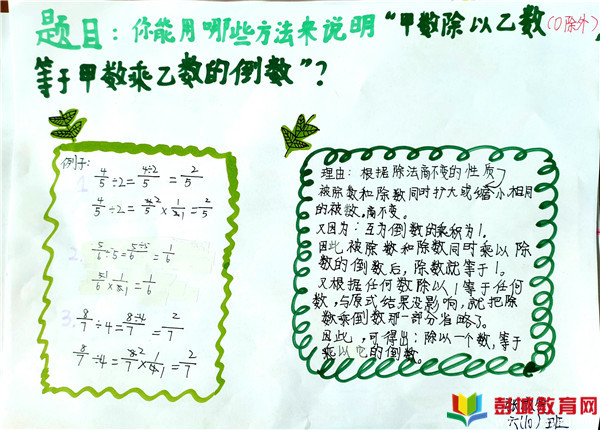 题目：你能用哪些方法来说明“甲数除以乙数(0除外)
等于甲数乘乙数的倒数”？
例子：
1. 4/5÷2=4÷2/5=2/5
4/5÷2=4²/5×1/2₁=2/5
2. 5/6÷5=5÷5/6=1/6
5¹/6×1/5₁=1/6
3. 8/7÷4=8÷4/7=2/7
8/7÷4=8²/7×1/4₁=2/7
理由：根据除法商不变的性质，
被除数和除数同时扩大或缩小相同
的倍数，商不变。
又因为：互为倒数的乘积为1。
因此被除数和除数同时乘以除
数的倒数后，除数就等于1。
又根据任何数除以1等于任何
数，与原式结果没影响，就把除
数乘倒数那一部分省略了。
因此，可得出：除以一个数，等于
乘以它的倒数。
六(10)班
彭城教育网